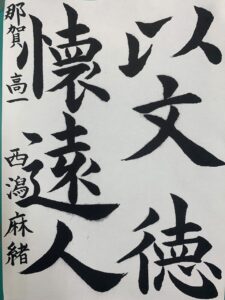 以文徳
懐遠人
那賀高一 西潟麻緒